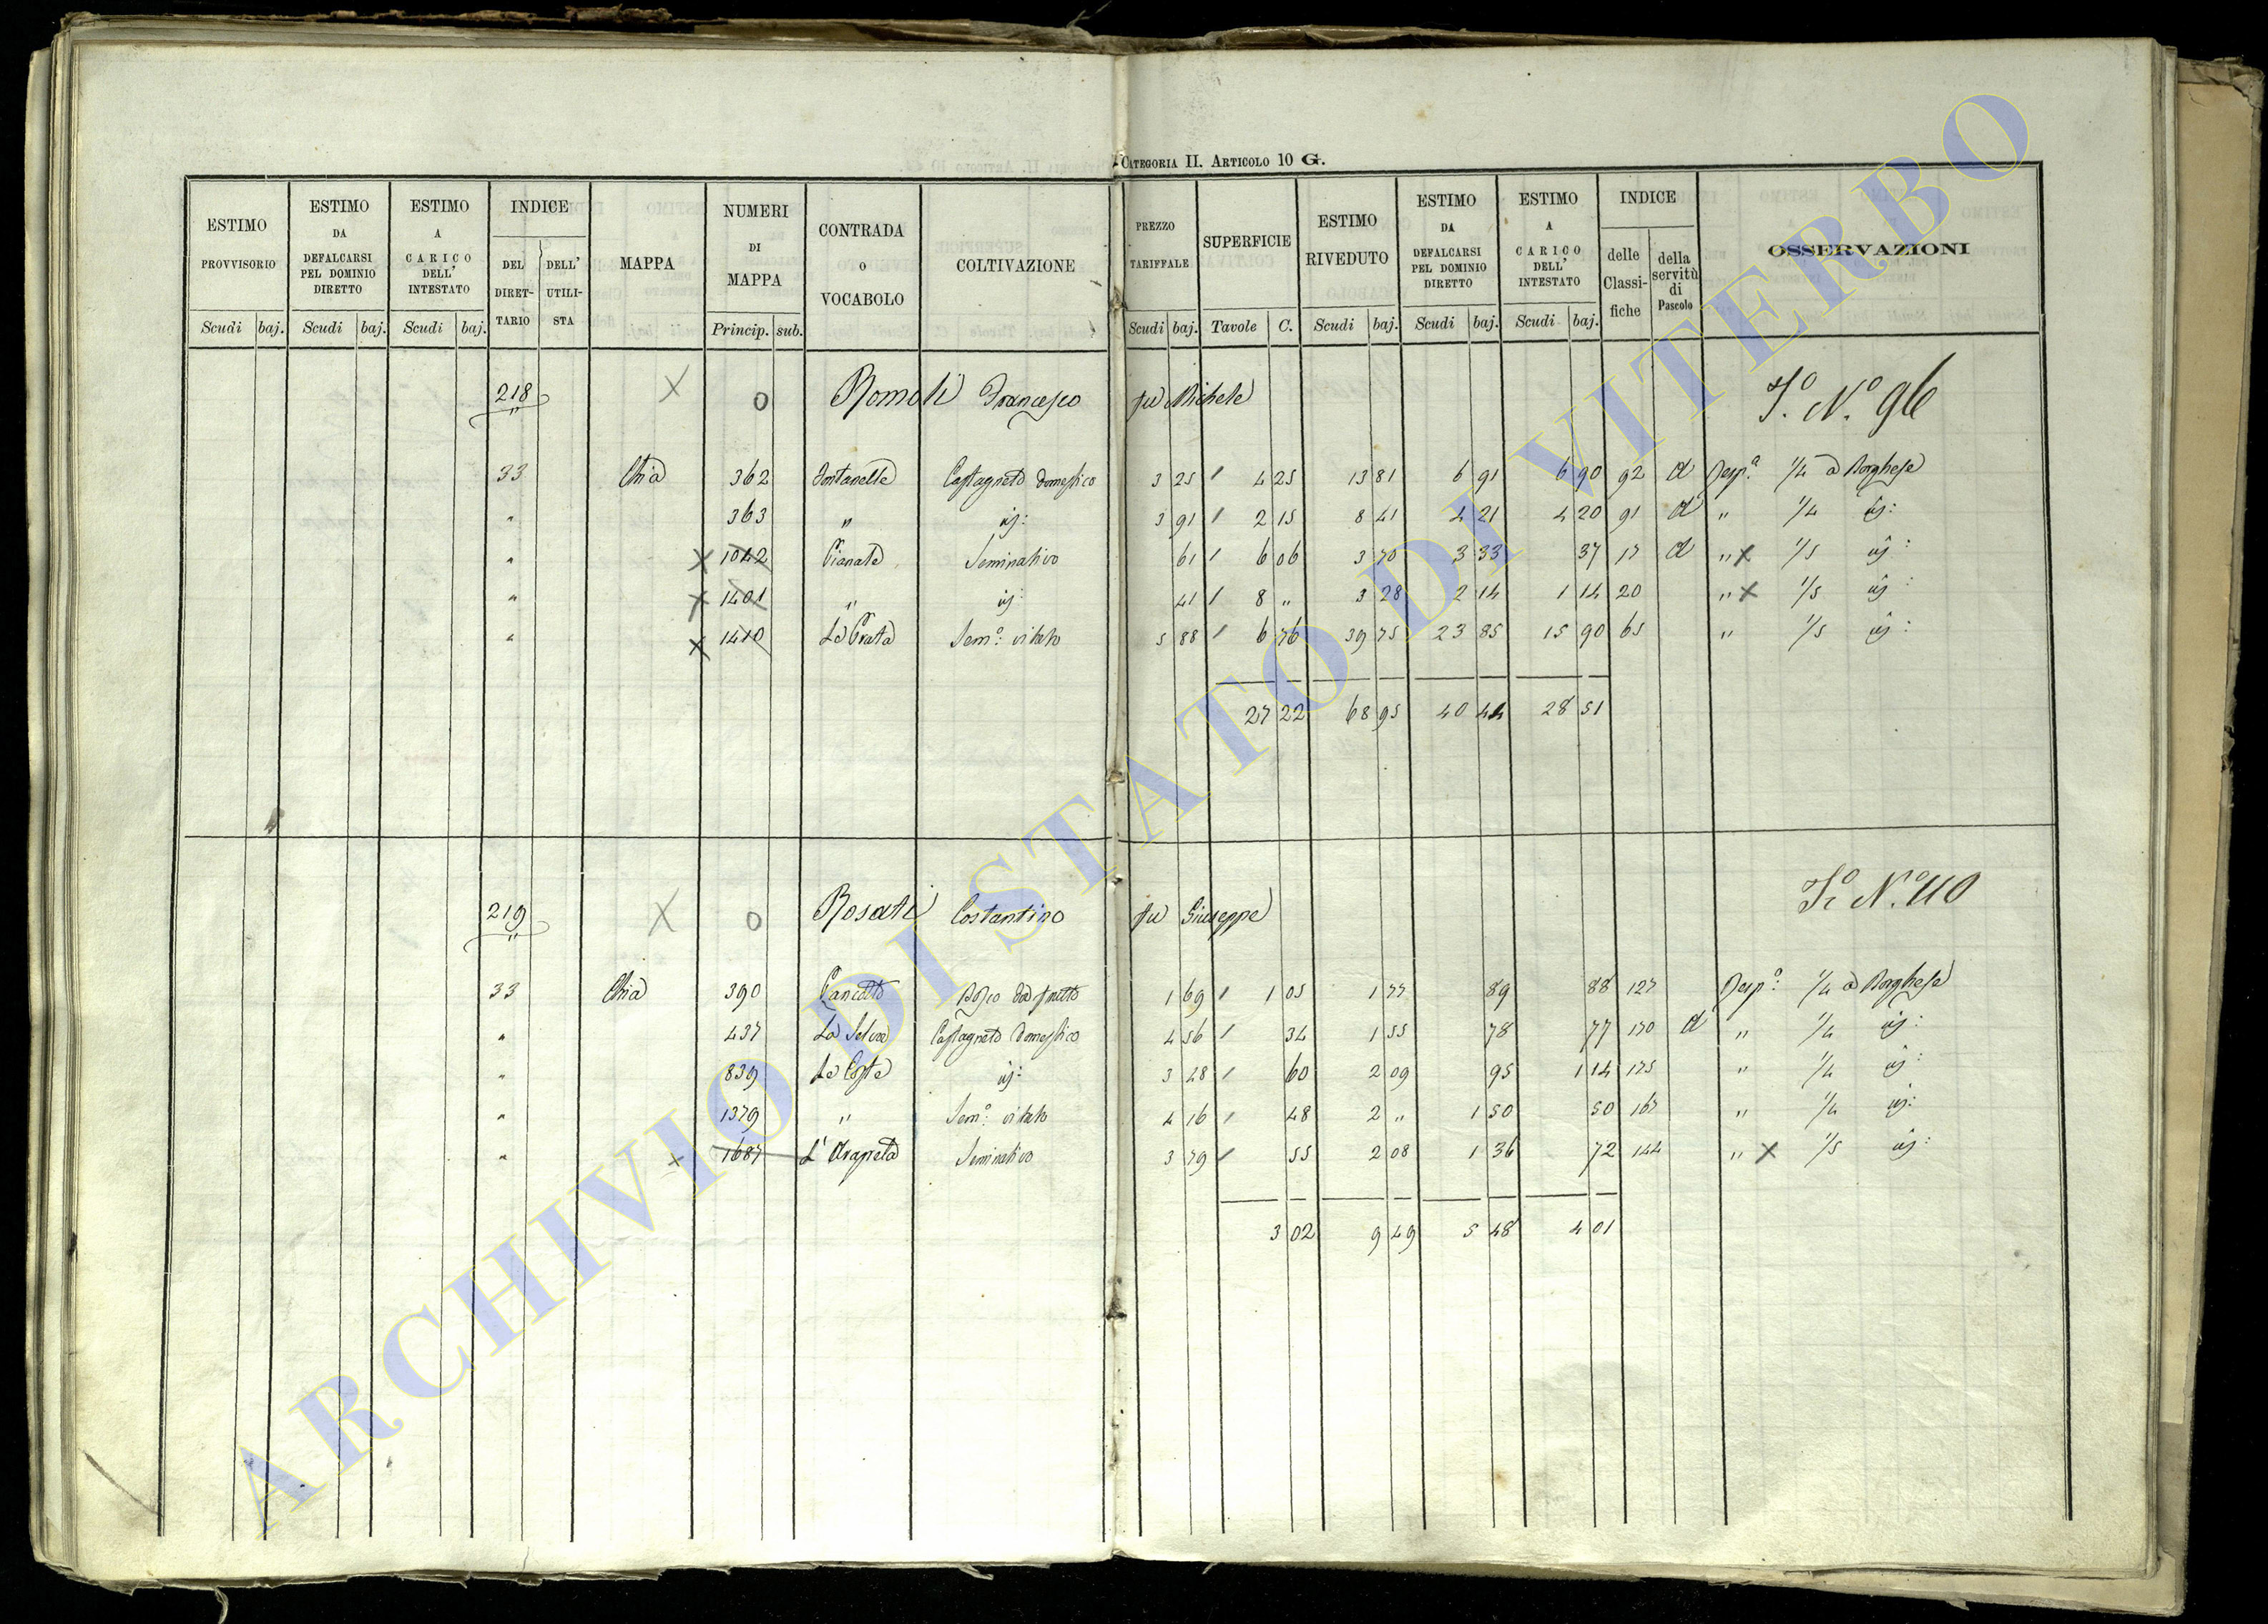 CATEGORIA II. ARTICOLO 10 G.
ESTIMO PROVVISORIO Scudi baj.
ESTIMO DA DEFALCARSI PEL DOMINIO DIRETTO Scudi baj.
ESTIMO A CARICO DELL' INTESTATO Scudi baj.
INDICE DEL DIRET-TARIO DELL' UTILI-STA
MAPPA
NUMERI DI MAPPA Princip. sub.
CONTRADA O VOCABOLO
COLTIVAZIONE
PREZZO TARIFFALE Scudi baj.
SUPERFICIE Tavole C.
ESTIMO RIVEDUTO Scudi baj.
ESTIMO DA DEFALCARSI PEL DOMINIO DIRETTO Scudi baj.
ESTIMO A CARICO DELL' INTESTATO Scudi baj.
INDICE delle Classi-fiche della servitù di Pascolo
OSSERVAZIONI
218 X 0 Romoli Francesco fu Michele Tº. Nº. 96
33 Chia 362 Fontanelle Castagneto domestico 3 25 4 25 13 81 6 91 6 90 92 d Rispª. 1/4 a Borghese
" 363 " id: 3 91 2 15 8 41 4 21 4 20 91 d " 1/4 id:
" X 1042 Pianate Seminativo 61 6 06 3 70 3 33 37 17 d " X 1/5 id:
" X 1401 " id: 41 8 " 3 28 2 14 1 14 20 " X 1/5 id:
" X 1410 Le Prata Semº: vitato 5 88 6 76 39 75 23 85 15 90 65 " 1/5 id:
27 22 68 95 40 44 28 51
219 X 0 Rosati Costantino fu Giuseppe Tº. Nº. 110
33 Chia 390 Canceto Bosco da frutto 1 69 1 05 1 77 89 88 127 Rispº: 1/4 a Borghese
" 437 La Selva Castagneto domestico 4 56 34 1 55 78 77 170 d " 1/4 id:
" 839 Le Coste id: 3 48 60 2 09 95 1 14 175 " 1/4 id:
" 1379 " Semº: vitato 4 16 48 2 " 1 50 50 167 " 1/4 id:
" X 1687 Seminativo 3 79 55 2 08 1 36 72 144 " X 1/5 id:
3 02 9 49 5 48 4 01
ARCHIVIO DI STATO DI VITERBO